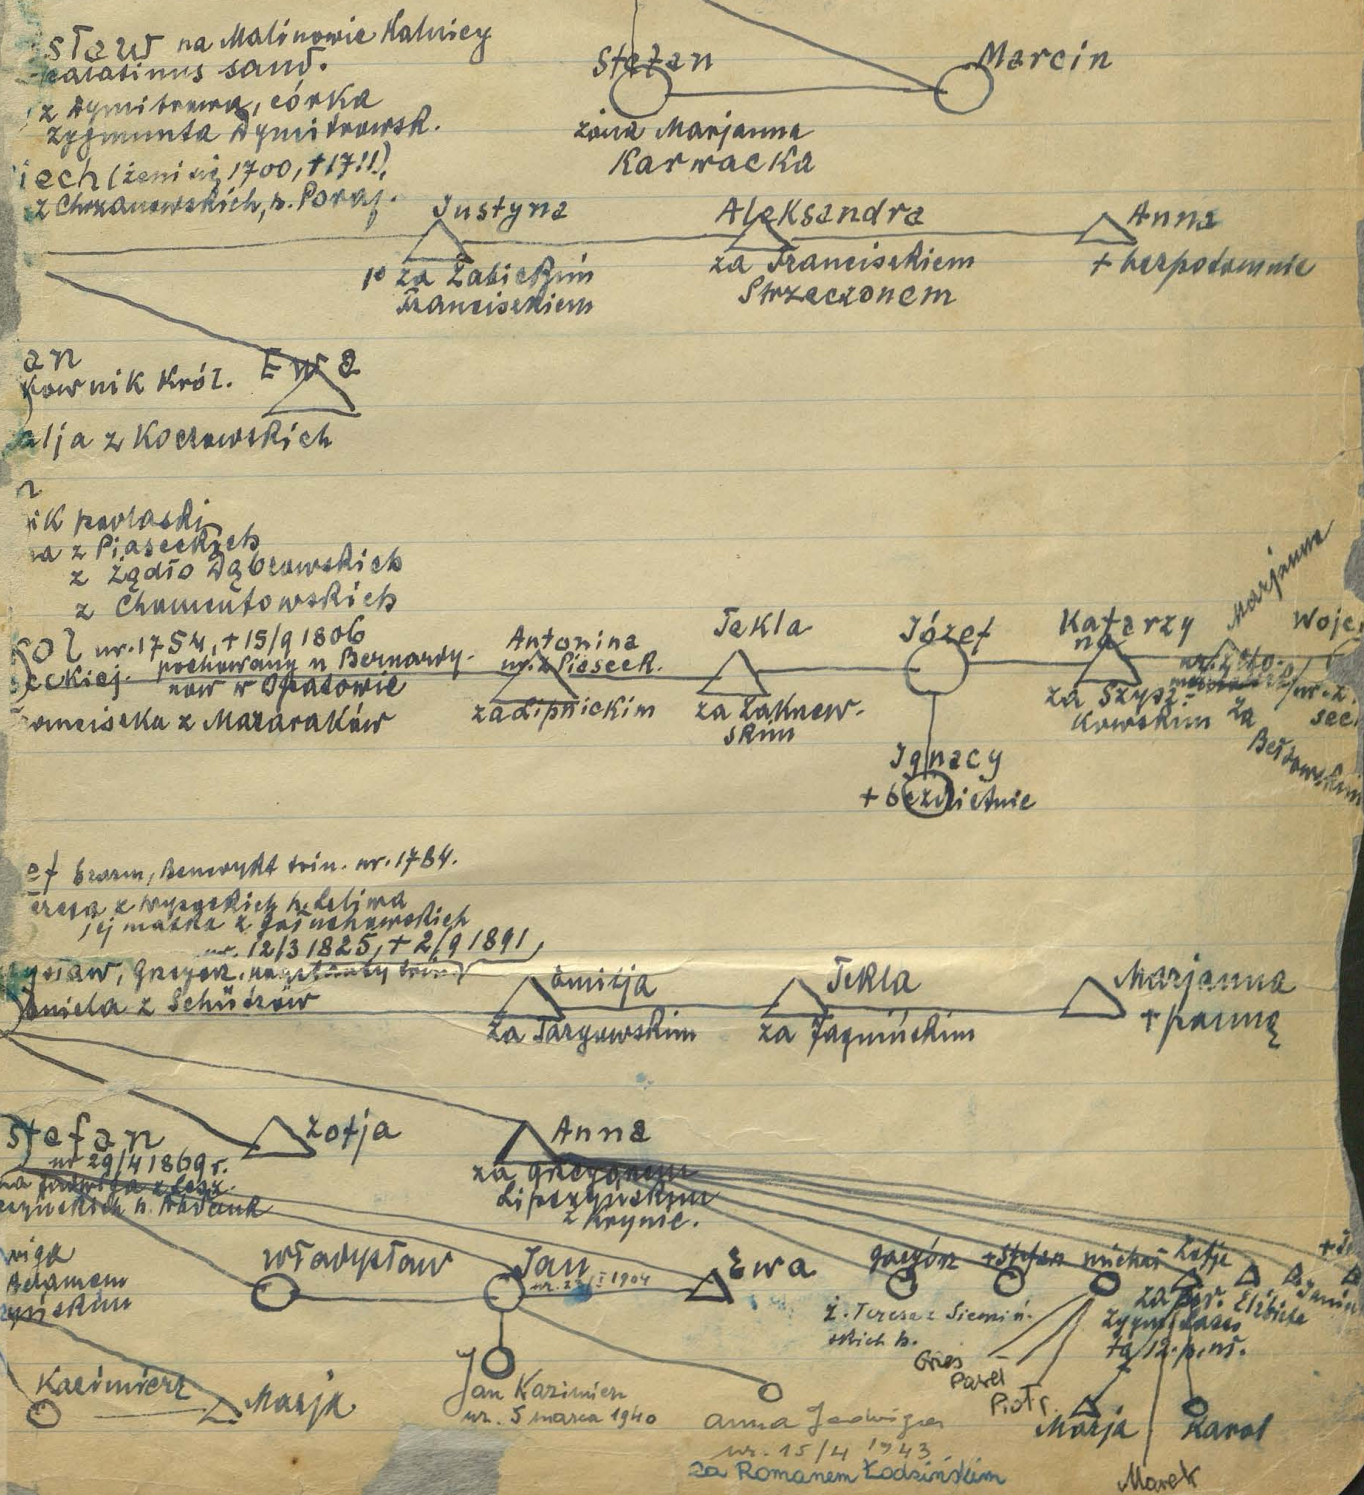 sław na Malinowie Kalnicy
palatinus sand.
z Dymitrowa, córka
Zygmunta Dymitrowsk.
iech (żeni się 1700, +1711),
z Chrzanowskich, h. Poraj.
Stefan
żona Marjanna
Karwacka
Marcin
Justyna
1º za Żabickim
Franciszkiem
Aleksandra
za Franciszkiem
Strzeczonem
Anna
+ bezpotomnie
an
kownik Król.
alja z Koczowskich
Ewa
ik podlaski
na z Piaseckich
z Żądło Dąbrowskich
z Chomentowskich
ur. 1754, + 15/9 1806
pochowany u Bernardy-
nów w Opatowie
eckiej.
anciszka z Mazaraków
Antonina
ur. z Piaseck.
za Lipnickim
Tekla
za Żaknew-
skim
Józef
Ignacy
+ bezdzietnie
Katarzy
na
za Szysz-
kowskim
Marjanna
za
Wojc
ur. z
sec
ef bzom, Benedykt ur. 1784.
eresa z Wysockich h. Leliwa
jej matka z
ur. 12/3 1825, + 2/9 1891,
ysław, Grzegorz,
aniela z Schützów
Emilja
za Targowskim
Tekla
za Jagnińskim
Marjanna
+ panną
Stefan
ur 29/4 1869 r.
na Jadwiga z Lesz-
czyńskich h. Habdank
Zofja
Anna
za Grzegorzem
Lipczyńskim
z Krynic.
wiga
Adamem
Władysław
Jan
1904
Ewa
Grzegórz
ż. Teresa z Siemiń-
skich h.
+ Stefan
Michał
Zofja
Elżbieta
Janina
Grzes
Paweł
Piotr
Marja
Karol
Marek
Kazimierz
Marja
Jan Kazimierz
ur. 5 marca 1940
Anna Jadwiga
ur. 15/4 1943
za Romanem Łodzińskim